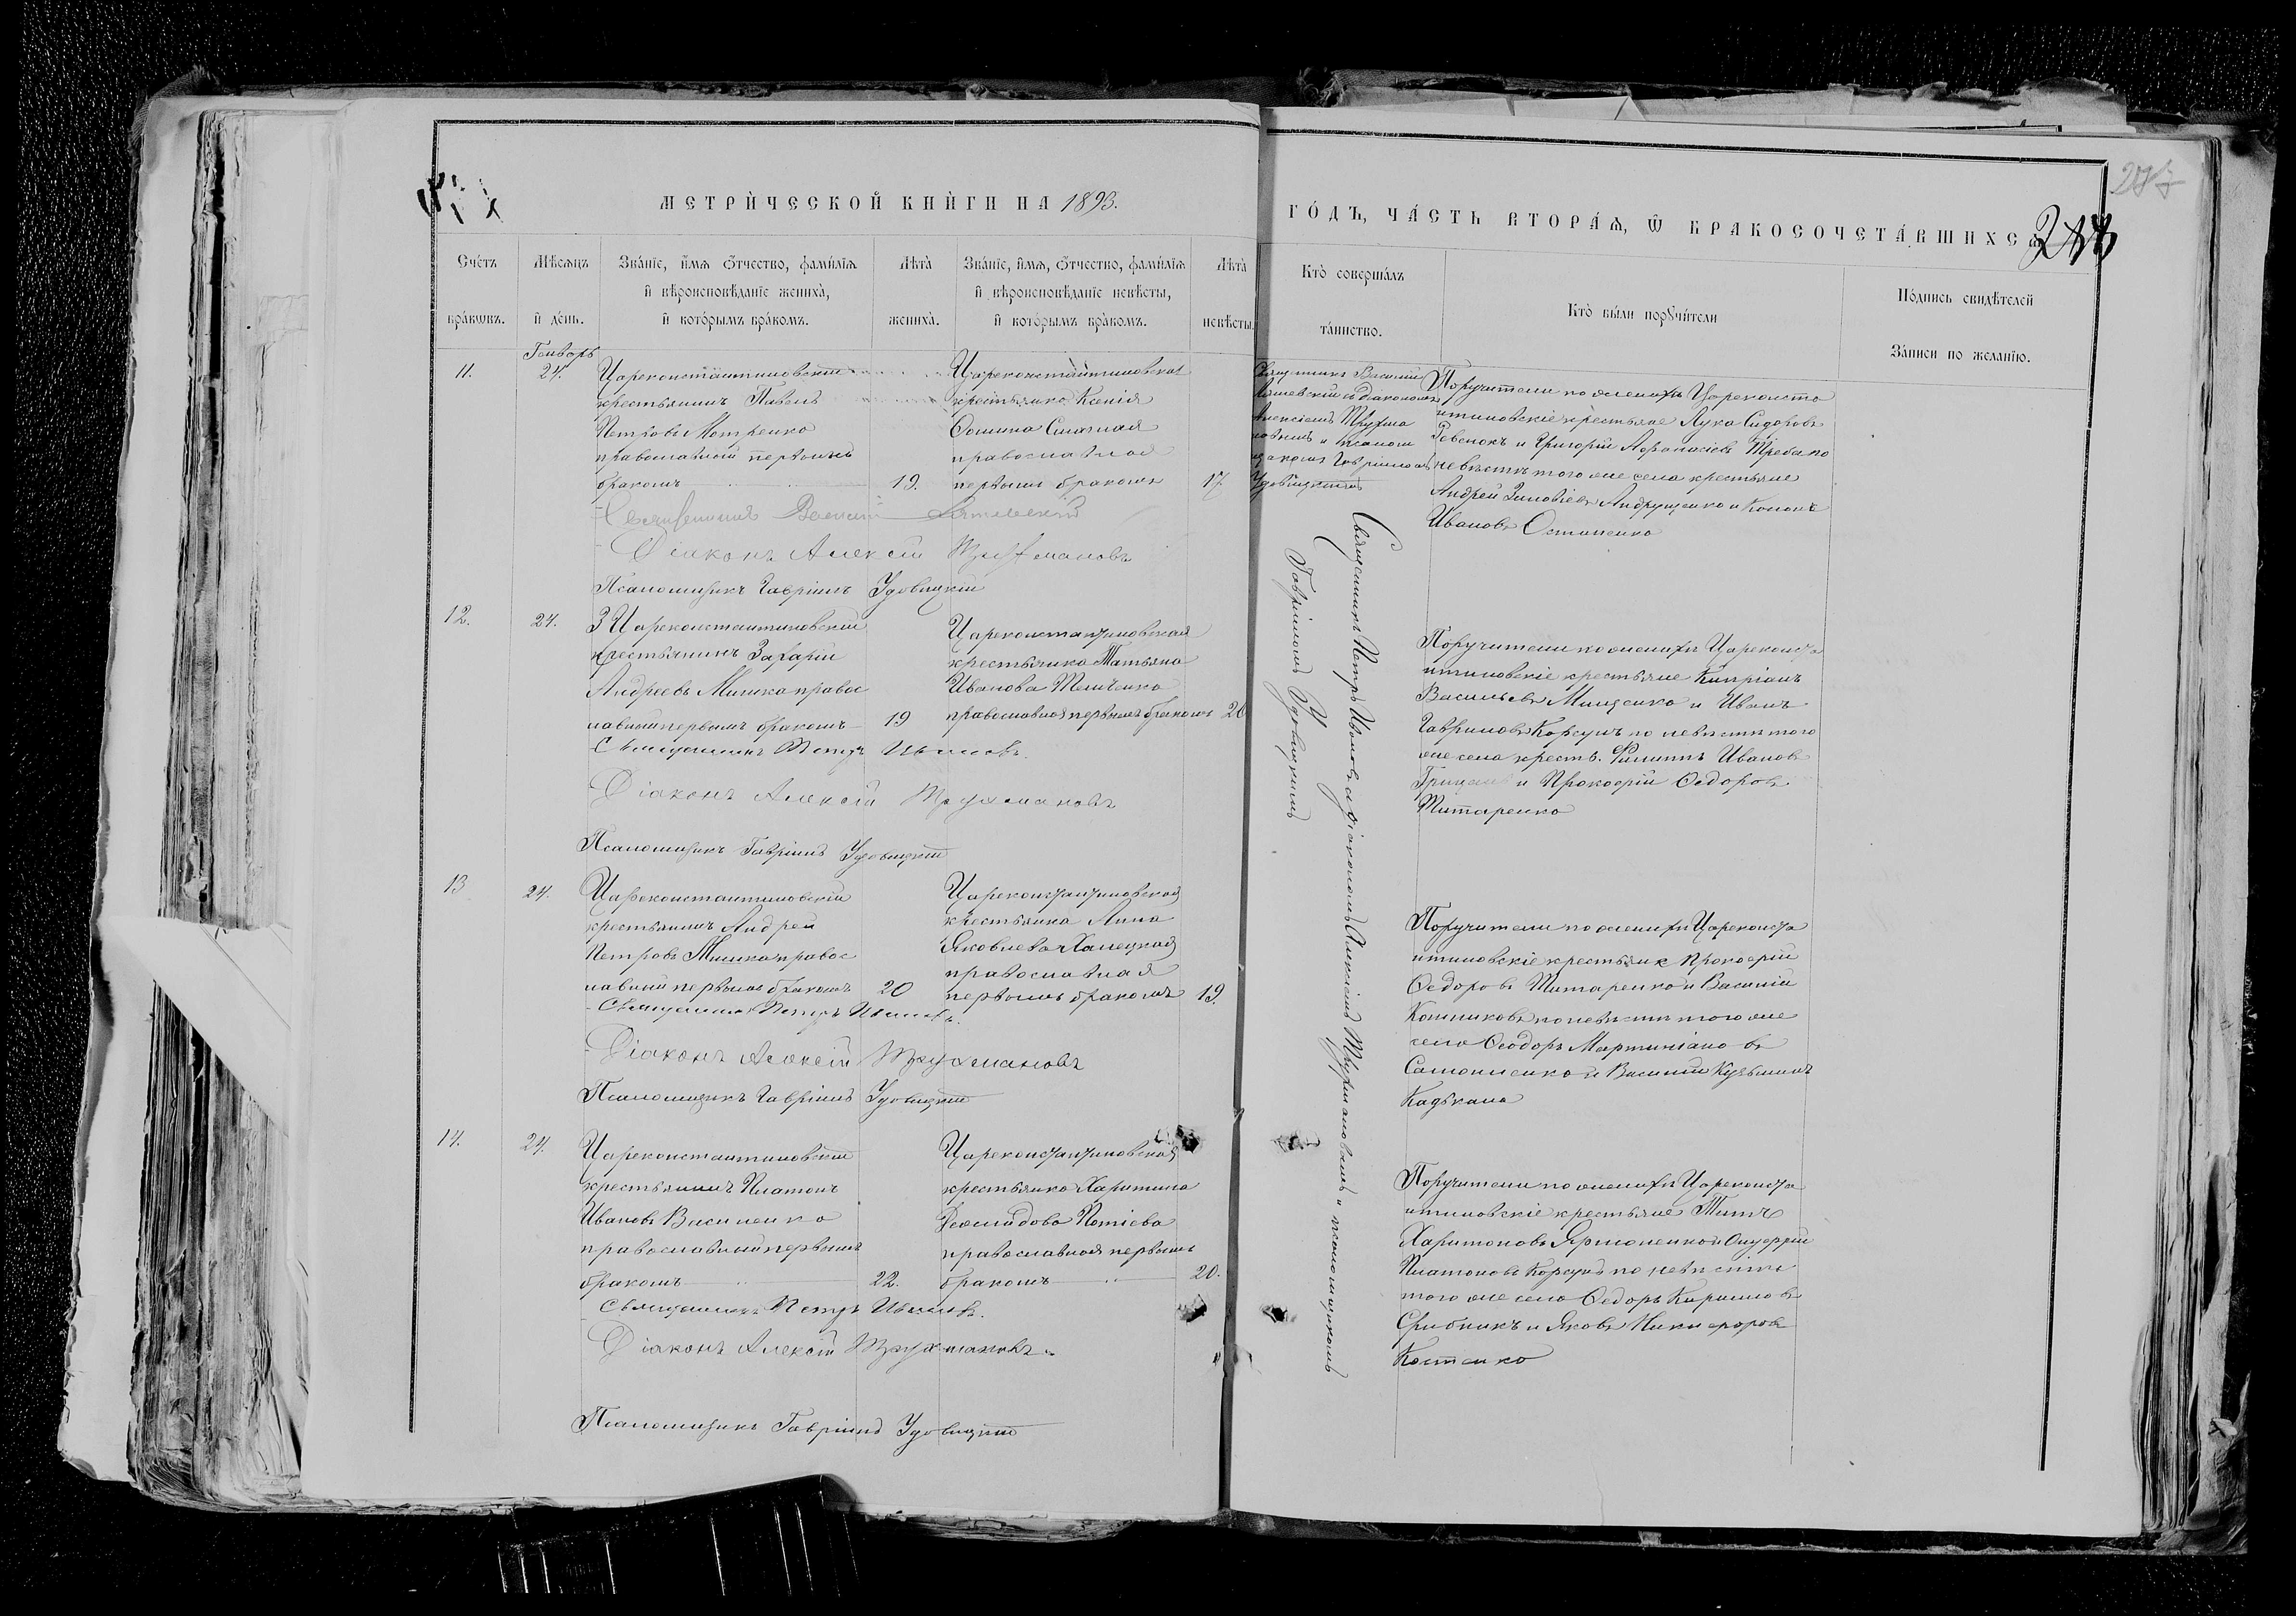 МЕТРИЧЕСКОЙ КНИГИ НА 1893.
Счетъ браковъ.
Мѣсяцъ и день.
Званіе, имя, отчество, фамилія
и вѣроисповѣданіе жениха,
и которымъ бракомъ.
Лѣта
жениха.
Званіе, имя, отчество, фамилія
и вѣроисповѣданіе невѣсты,
и которымъ бракомъ.
Лѣта
невѣсты.
11.
Генварь
24.
Цареконстантиновскій
крестьянинъ Павелъ
Петровъ Мотренко
православный первымъ
бракомъ
19.
Цареконстантиновская
крестьянка Ксенія
Фомина
православная
первымъ бракомъ
17
Священникъ Василій
Діаконъ Алексій Трухмановъ
Псаломщикъ Гавріилъ Удовицкій
12.
24.
З Цареконстантиновскій
крестьянинъ Захарій
Андреевъ Мишка правос
лавный первымъ бракомъ
19
Цареконстантиновская
крестьянка Татьяна
Иванова
православная первымъ бракомъ
20
Священникъ Петръ Ивановъ.
Діаконъ Алексій Трухмановъ
Псаломщикъ Гавріилъ Удовицкій
13
24.
Цареконстантиновскій
крестьянинъ Андрей
Петровъ Мишка правос
лавный первымъ бракомъ
20
Цареконстантиновская
крестьянка Анна
Яковлева Халецкая
православная
первымъ бракомъ
19.
Священникъ Петръ Ивановъ.
Діаконъ Алексій Трухмановъ
Псаломщикъ Гавріилъ Удовицкій
14.
24.
Цареконстантиновскій
крестьянинъ Платонъ
Ивановъ Василенко
православный первымъ
бракомъ
22.
Цареконстантиновская
крестьянка Харитина
Демидова
православная первымъ
бракомъ
20.
Священникъ Петръ Ивановъ.
Діаконъ Алексій Трухмановъ.
Псаломщикъ Гавріилъ Удовицкій
ГОДЪ, ЧАСТЬ ВТОРАЯ, Ѿ БРАКОСОЧЕТАВШИХСЯ
Кто совершалъ
таинство.
Кто были поручители
Подпись свидѣтелей
записи по желанію.
Священникъ Василій
съ діакономъ
Алексіемъ Трухма
новымъ и псалом
щикомъ Гавріиломъ
Удовицкимъ
Священникъ Петръ Ивановъ съ діакономъ Алексіемъ Трухмановымъ и псаломщикомъ
Гавріиломъ Удовицкимъ
Поручители по женихѣ Цареконста
нтиновскіе крестьяне Лука Сидоровъ
Ревенокъ и Григорій Афанасіевъ
невѣстѣ того же села крестьяне
Андрей Зиновіевъ Андрущенко и Кононъ
Ивановъ Остапенко
Поручители по женихѣ Цареконста
нтиновскіе крестьяне Кипріанъ
Васильевъ Мищенко и Иванъ
Гавриловъ Корсунъ по невѣстѣ того
же села крестьяне. Филиппъ Ивановъ
и Прокофій Федоровъ
Титаренко
Поручители по женихѣ Цареконста
нтиновскіе крестьяне Прокофій
Федоровъ Титаренко и Василій
по невѣстѣ того же
села Феодоръ Мартиніановъ
Самойленко и Василій Кузьминъ
Поручители по женихѣ Цареконста
нтиновскіе крестьяне Титъ
Харитоновъ Ярмоленко и Онуфрій
Платоновъ Корсунъ по невѣстѣ
того же села Федоръ Кириловъ
Срибникъ и Яковъ Никифоровъ
Костенко